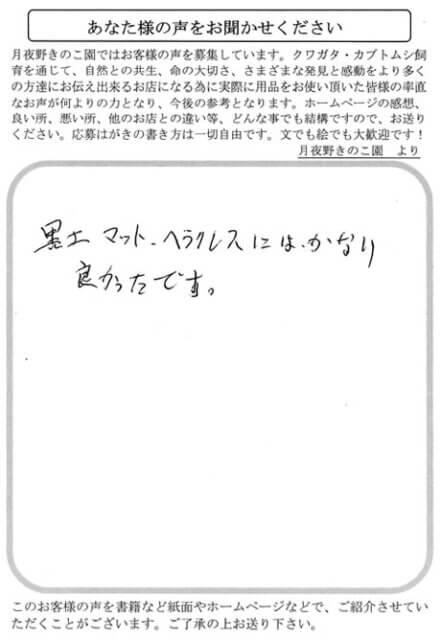 あなた様の声をお聞かせください
月夜野きのこ園ではお客様の声を募集しています。クワガタ・カブトムシ飼
育を通じて、自然との共生、命の大切さ、さまざまな発見と感動をより多く
の方達にお伝え出来るお店になる為に実際に用品をお使い頂いた皆様の率直
なお声が何よりの力となり、今後の参考となります。ホームページの感想、
良い所、悪い所、他のお店との違い等、どんな事でも結構ですので、お送り
ください。応募はがきの書き方は一切自由です。文でも絵でも大歓迎です！
月夜野きのこ園　より
黒土マット、ヘラクレスには、かなり
良かったです。
このお客様の声を書籍など紙面やホームページなどで、ご紹介させてい
ただくことがございます。ご了承の上お送り下さい。